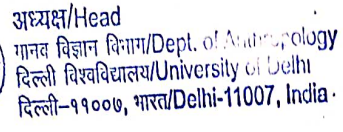 अध्यक्ष/Head
मानव विज्ञान विभाग/Dept. of Anthropology
दिल्ली विश्वविद्यालय/University of Delhi
दिल्ली-११००७, भारत/Delhi-11007, India.